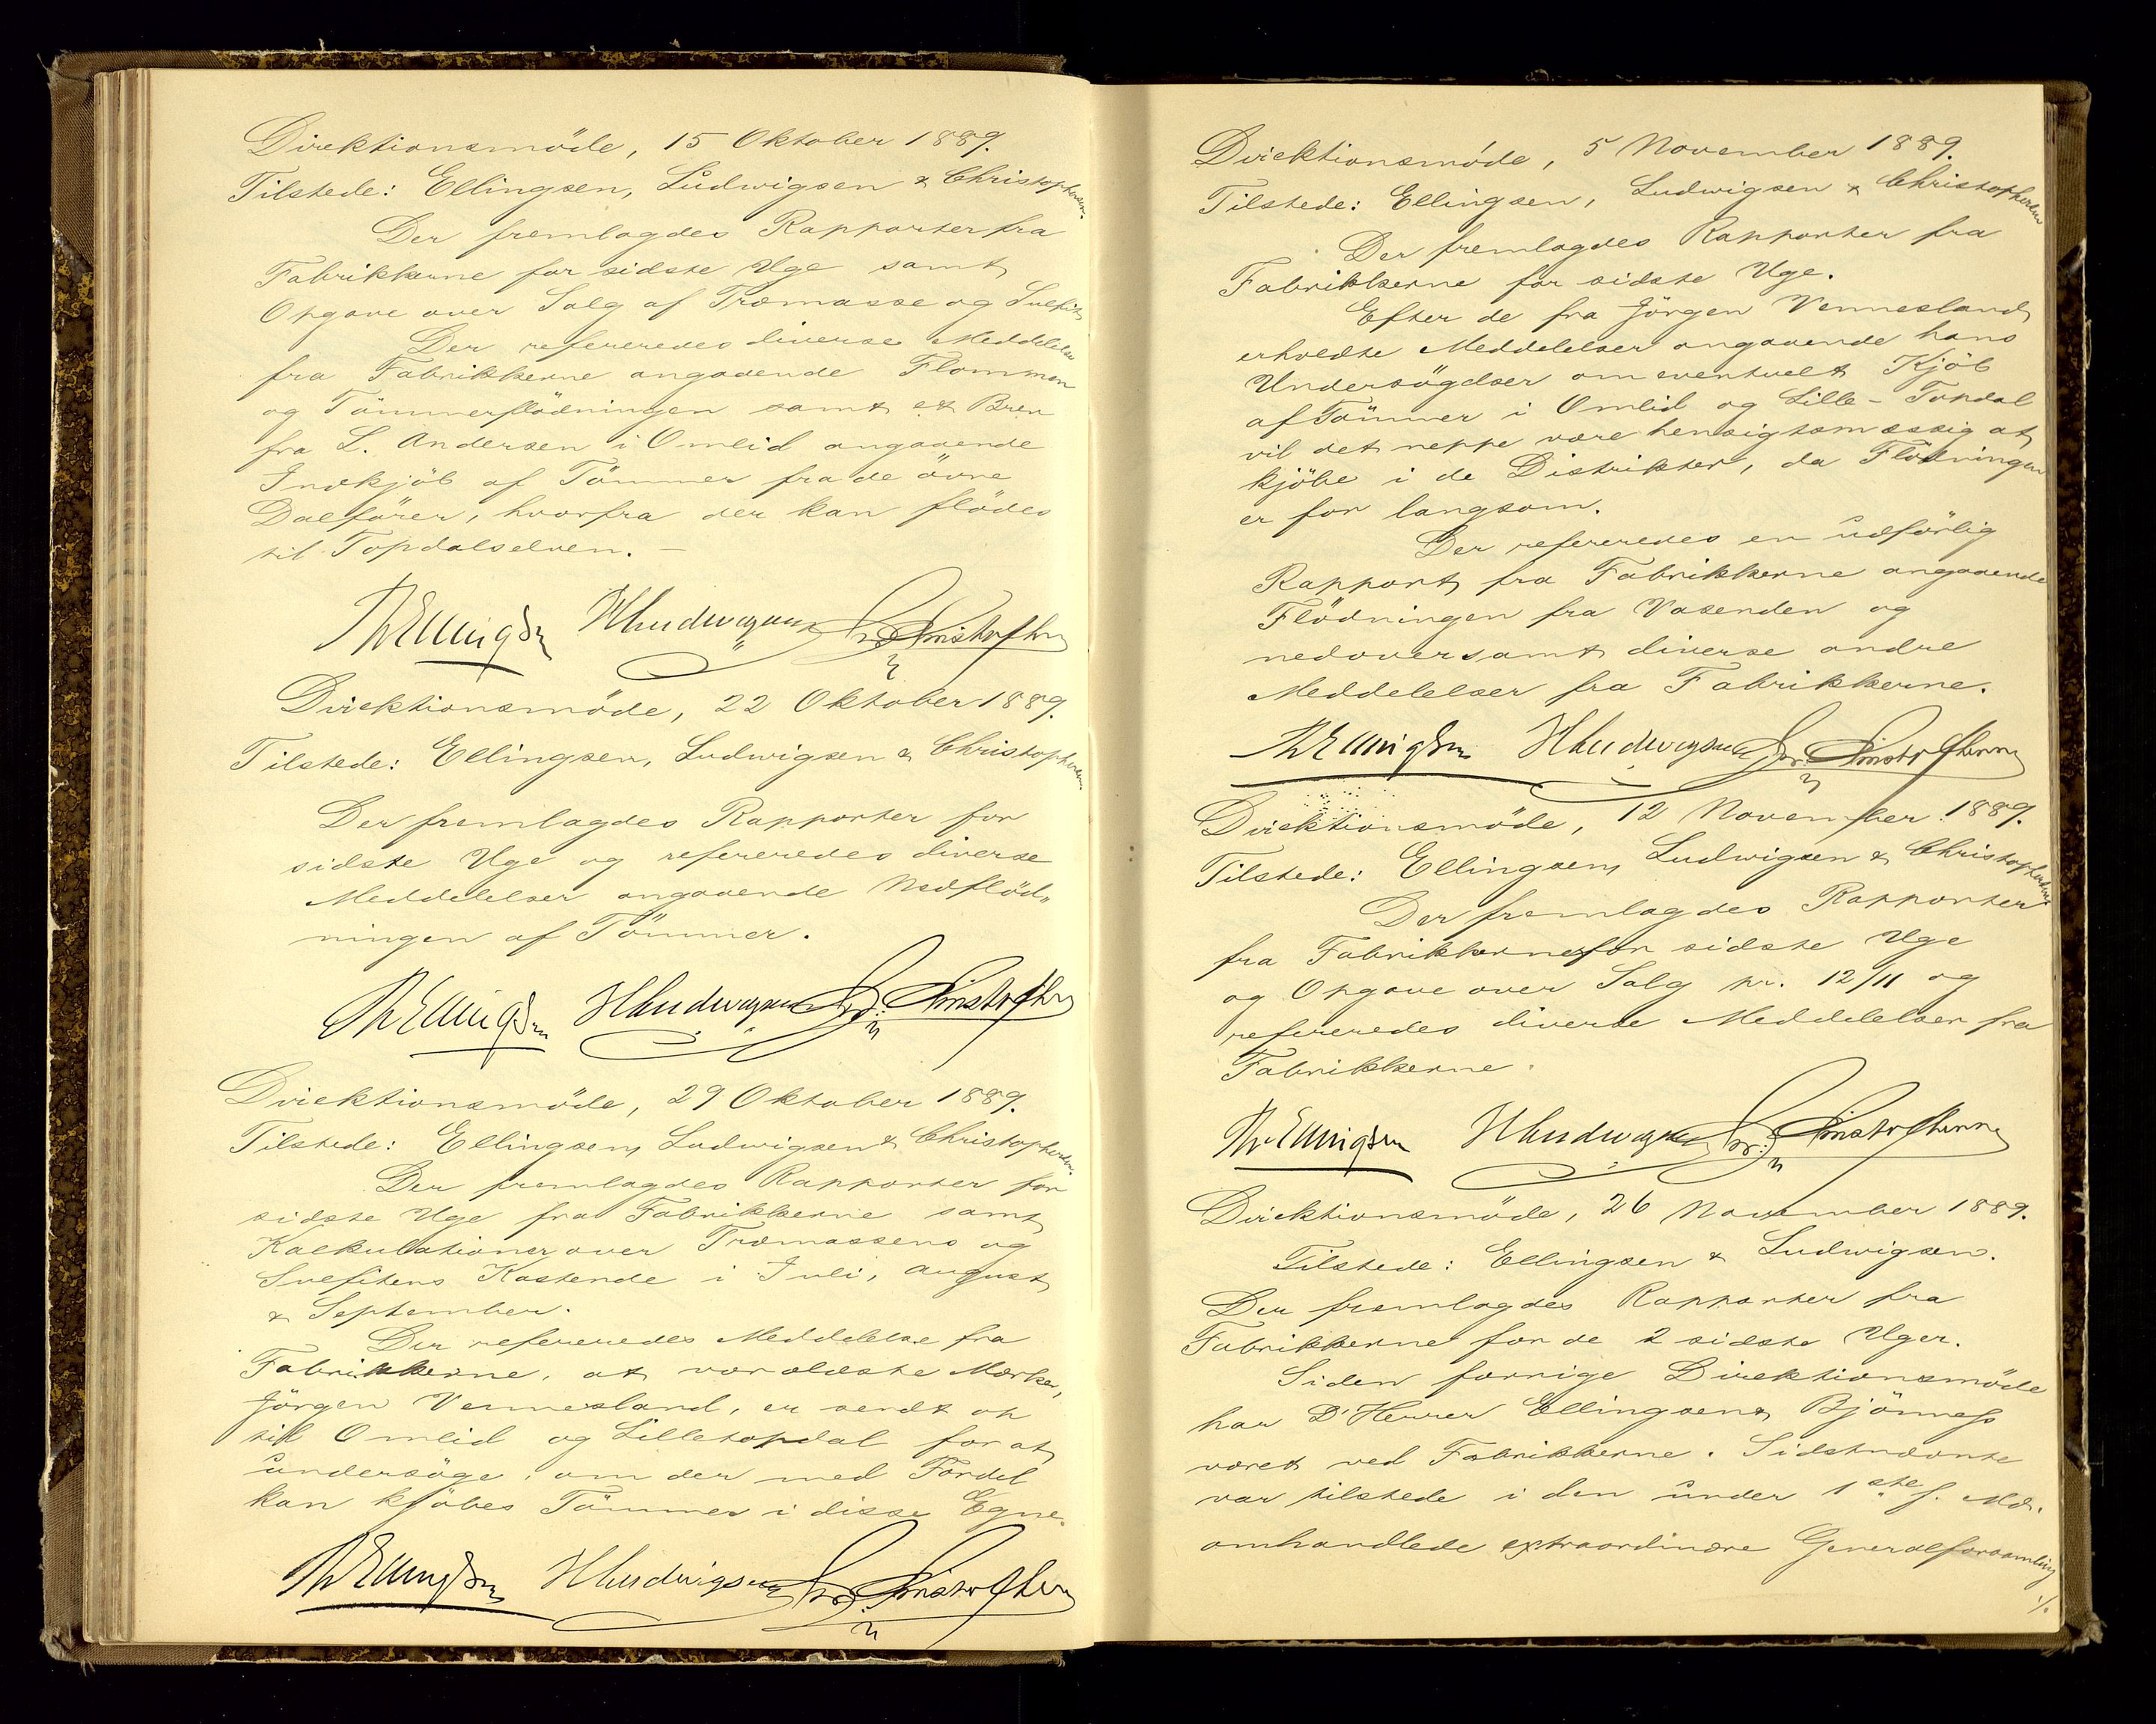 Direktionsmöde, 15 Oktober 1889.
Tilstede: Ellingsen, Ludwigsen & Christophersen.
Der fremlagdes Rapporter fra
Fabrikkerne for sidste Uge samt
Opgave over Salg af Træmasse og Sulfit
Der refereredes diverse Meddelelser
fra Fabrikkerne angaaende Flommen
og Tömmerflödningen samt et Brev
fra L. Andersen i Omlid angaaende
Indkjöb af Tömmer fra de övre
Dalförer, hvorfra der kan flödes
til Topdalselven. –
Th Ellingsen HLudwigsen Chr. Christophersen
Direktionsmöde, 22 Oktober 1889.
Tilstede: Ellingsen, Ludwigsen & Christophersen
Der fremlagdes Rapporter for
sidste Uge og refereredes diverse
Meddelelser angaaende Nedflöd„
ningen af Tömmer.
Th Ellingsen HLudwigsen Chr. Christophersen
Direktionsmöde, 29 Oktober 1889.
Tilstede: Ellingsen, Ludwigsen & Christophersen.
Der fremlagdes Rapporter for
sidste Uge fra Fabrikkerne samt
Kalkulationer over Træmassens og
Sulfitens Kostende i Juli, August
& September.
Der refereredes Meddelelse fra
Fabrikkerne, at vor ældste Mærker,
Jörgen Vennesland, er sendt op
til Omlid og Lilletopdal for at
undersöge, om der med Fordel
kan kjöbes Tömmer i disse Egne.
Th Ellingsen HLudwigsen Chr. Christophersen
Direktionsmöde, 5 November 1889.
Tilstede: Ellingsen, Ludwigsen & Christophersen
Der fremlagdes Rapporter fra
Fabrikkerne for sidste Uge.
Efter de fra Jörgen Vennesland
erholdte Meddelelser angaaende hans
Undersögelser om eventuelt Kjöb
af Tömmer i Omlid og Lille-Topdal
vil det neppe være hensigtsmæssig at
kjöbe i de Distrikter, da Flödningen
er for langsom.
Der refereredes en udförlig
Rapport fra Fabrikkerne angaaende
Flödningen fra Vasenden og
nedover samt diverse andre
Meddelelser fra Fabrikkerne.
Th Ellingsen HLudwigsen Chr. Christophersen
Direktionsmöde, 12 November 1889.
Tilstede: Ellingsen, Ludwigsen & Christophersen.
Der fremlagdes Rapporter
fra Fabrikkerne for sidste Uge
og Opgave over Salg pr. 12/11 og
refereredes diverse Meddelelser fra
Fabrikkerne.
Th Ellingsen HLudwigsen Chr. Christophersen
Direktionsmöde, 26 November 1889.
Tilstede: Ellingsen & Ludwigsen.
Der fremlagdes Rapporter fra
Fabrikkerne for de 2 sidste Uger.
Siden forrige Direktionsmöde
har D'Herrer Ellingsen & Bjönness
været ved Fabrikkerne. Sidstnævnte
var tilstede i den under 1ste f. Md.
omhandlede extraordinære Generalforsamling
./.